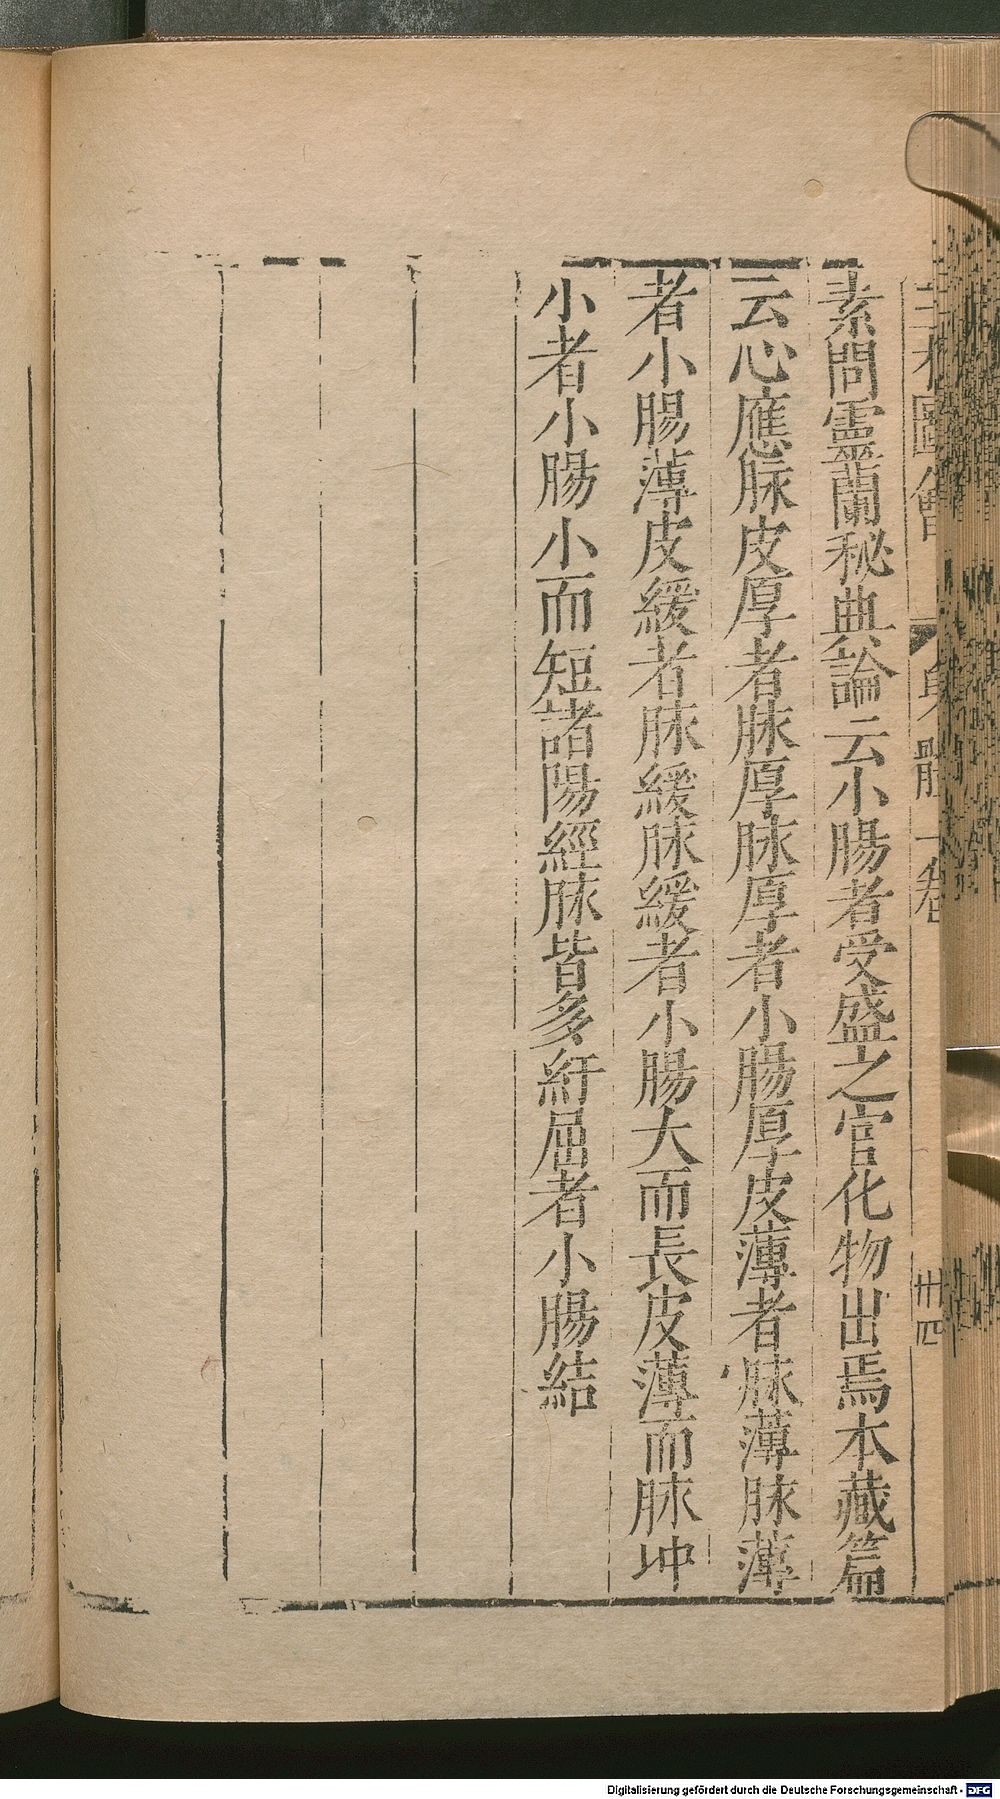 三才圖會 身體一卷 卅四
素問靈蘭秘典論云小腸者受盛之官化物出焉本藏篇
云心應脉皮厚者脉厚脉厚者小腸厚皮薄者脉薄脉薄
者小腸薄皮緩者脉緩脉緩者小腸大而長皮薄而脉冲
小者小腸小而短諸陽經脉皆多紆屈者小腸結
Digitalisierung gefördert durch die Deutsche Forschungsgemeinschaft - DFG